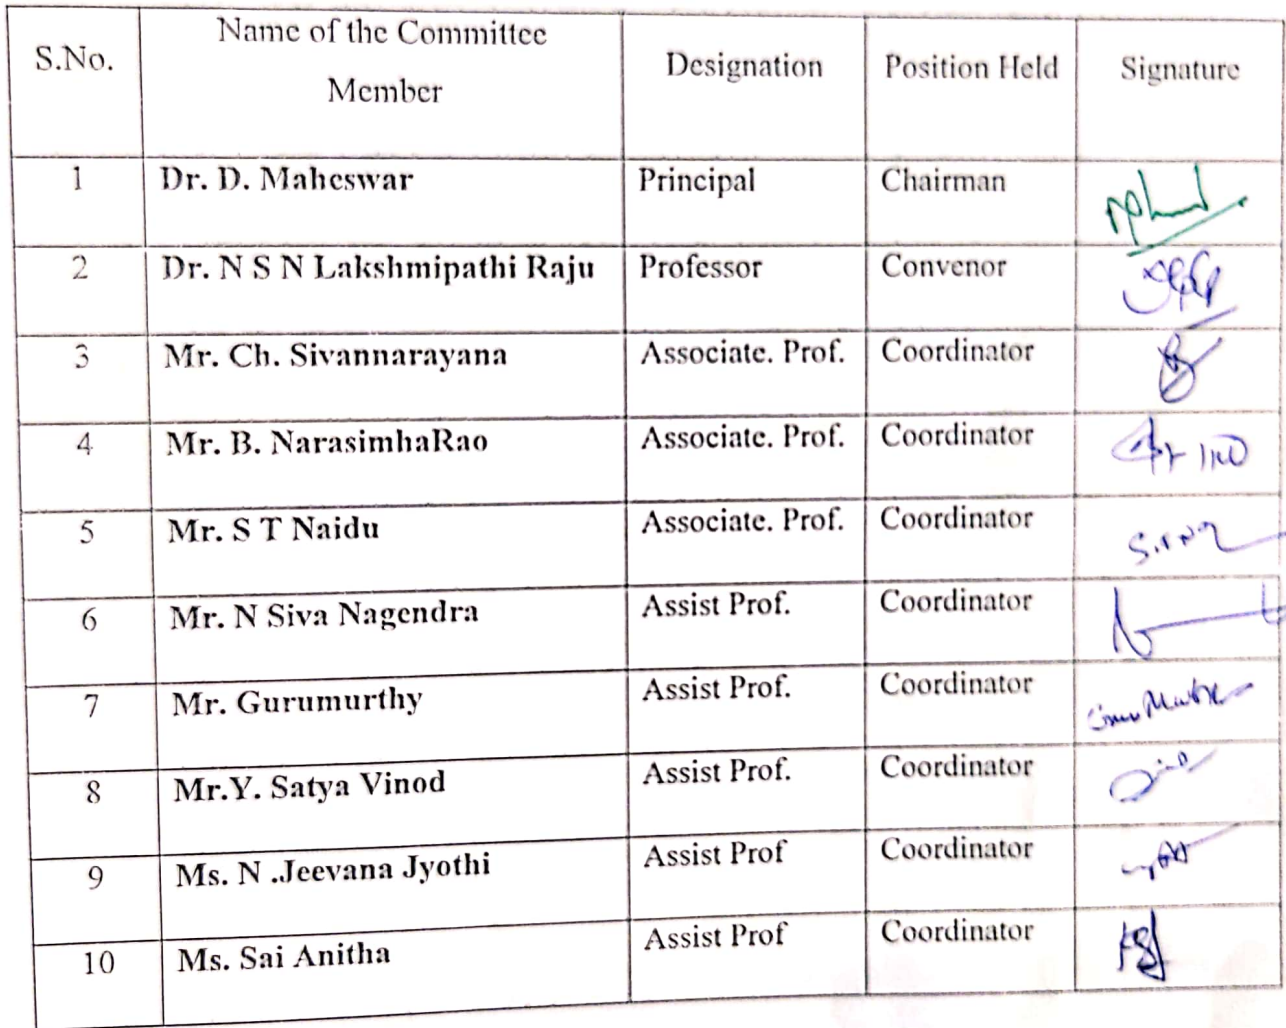 S.No. Name of the Committee Member Designation Position Held Signature
1 Dr. D. Maheswar Principal Chairman
2 Dr. N S N Lakshmipathi Raju Professor Convenor
3 Mr. Ch. Sivannarayana Associate. Prof. Coordinator
4 Mr. B. NarasimhaRao Associate. Prof. Coordinator
5 Mr. S T Naidu Associate. Prof. Coordinator
6 Mr. N Siva Nagendra Assist Prof. Coordinator
7 Mr. Gurumurthy Assist Prof. Coordinator
8 Mr.Y. Satya Vinod Assist Prof. Coordinator
9 Ms. N .Jeevana Jyothi Assist Prof Coordinator
10 Ms. Sai Anitha Assist Prof Coordinator